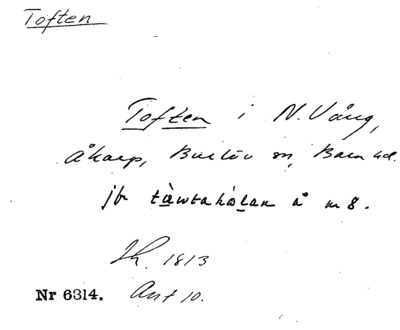 Toften
Toften i N. Vång,
Åkarp, Burlöv sn, Bara hd.
jfr tàwtahólan å m 8.
1813
Nr 6314. Ant 10.